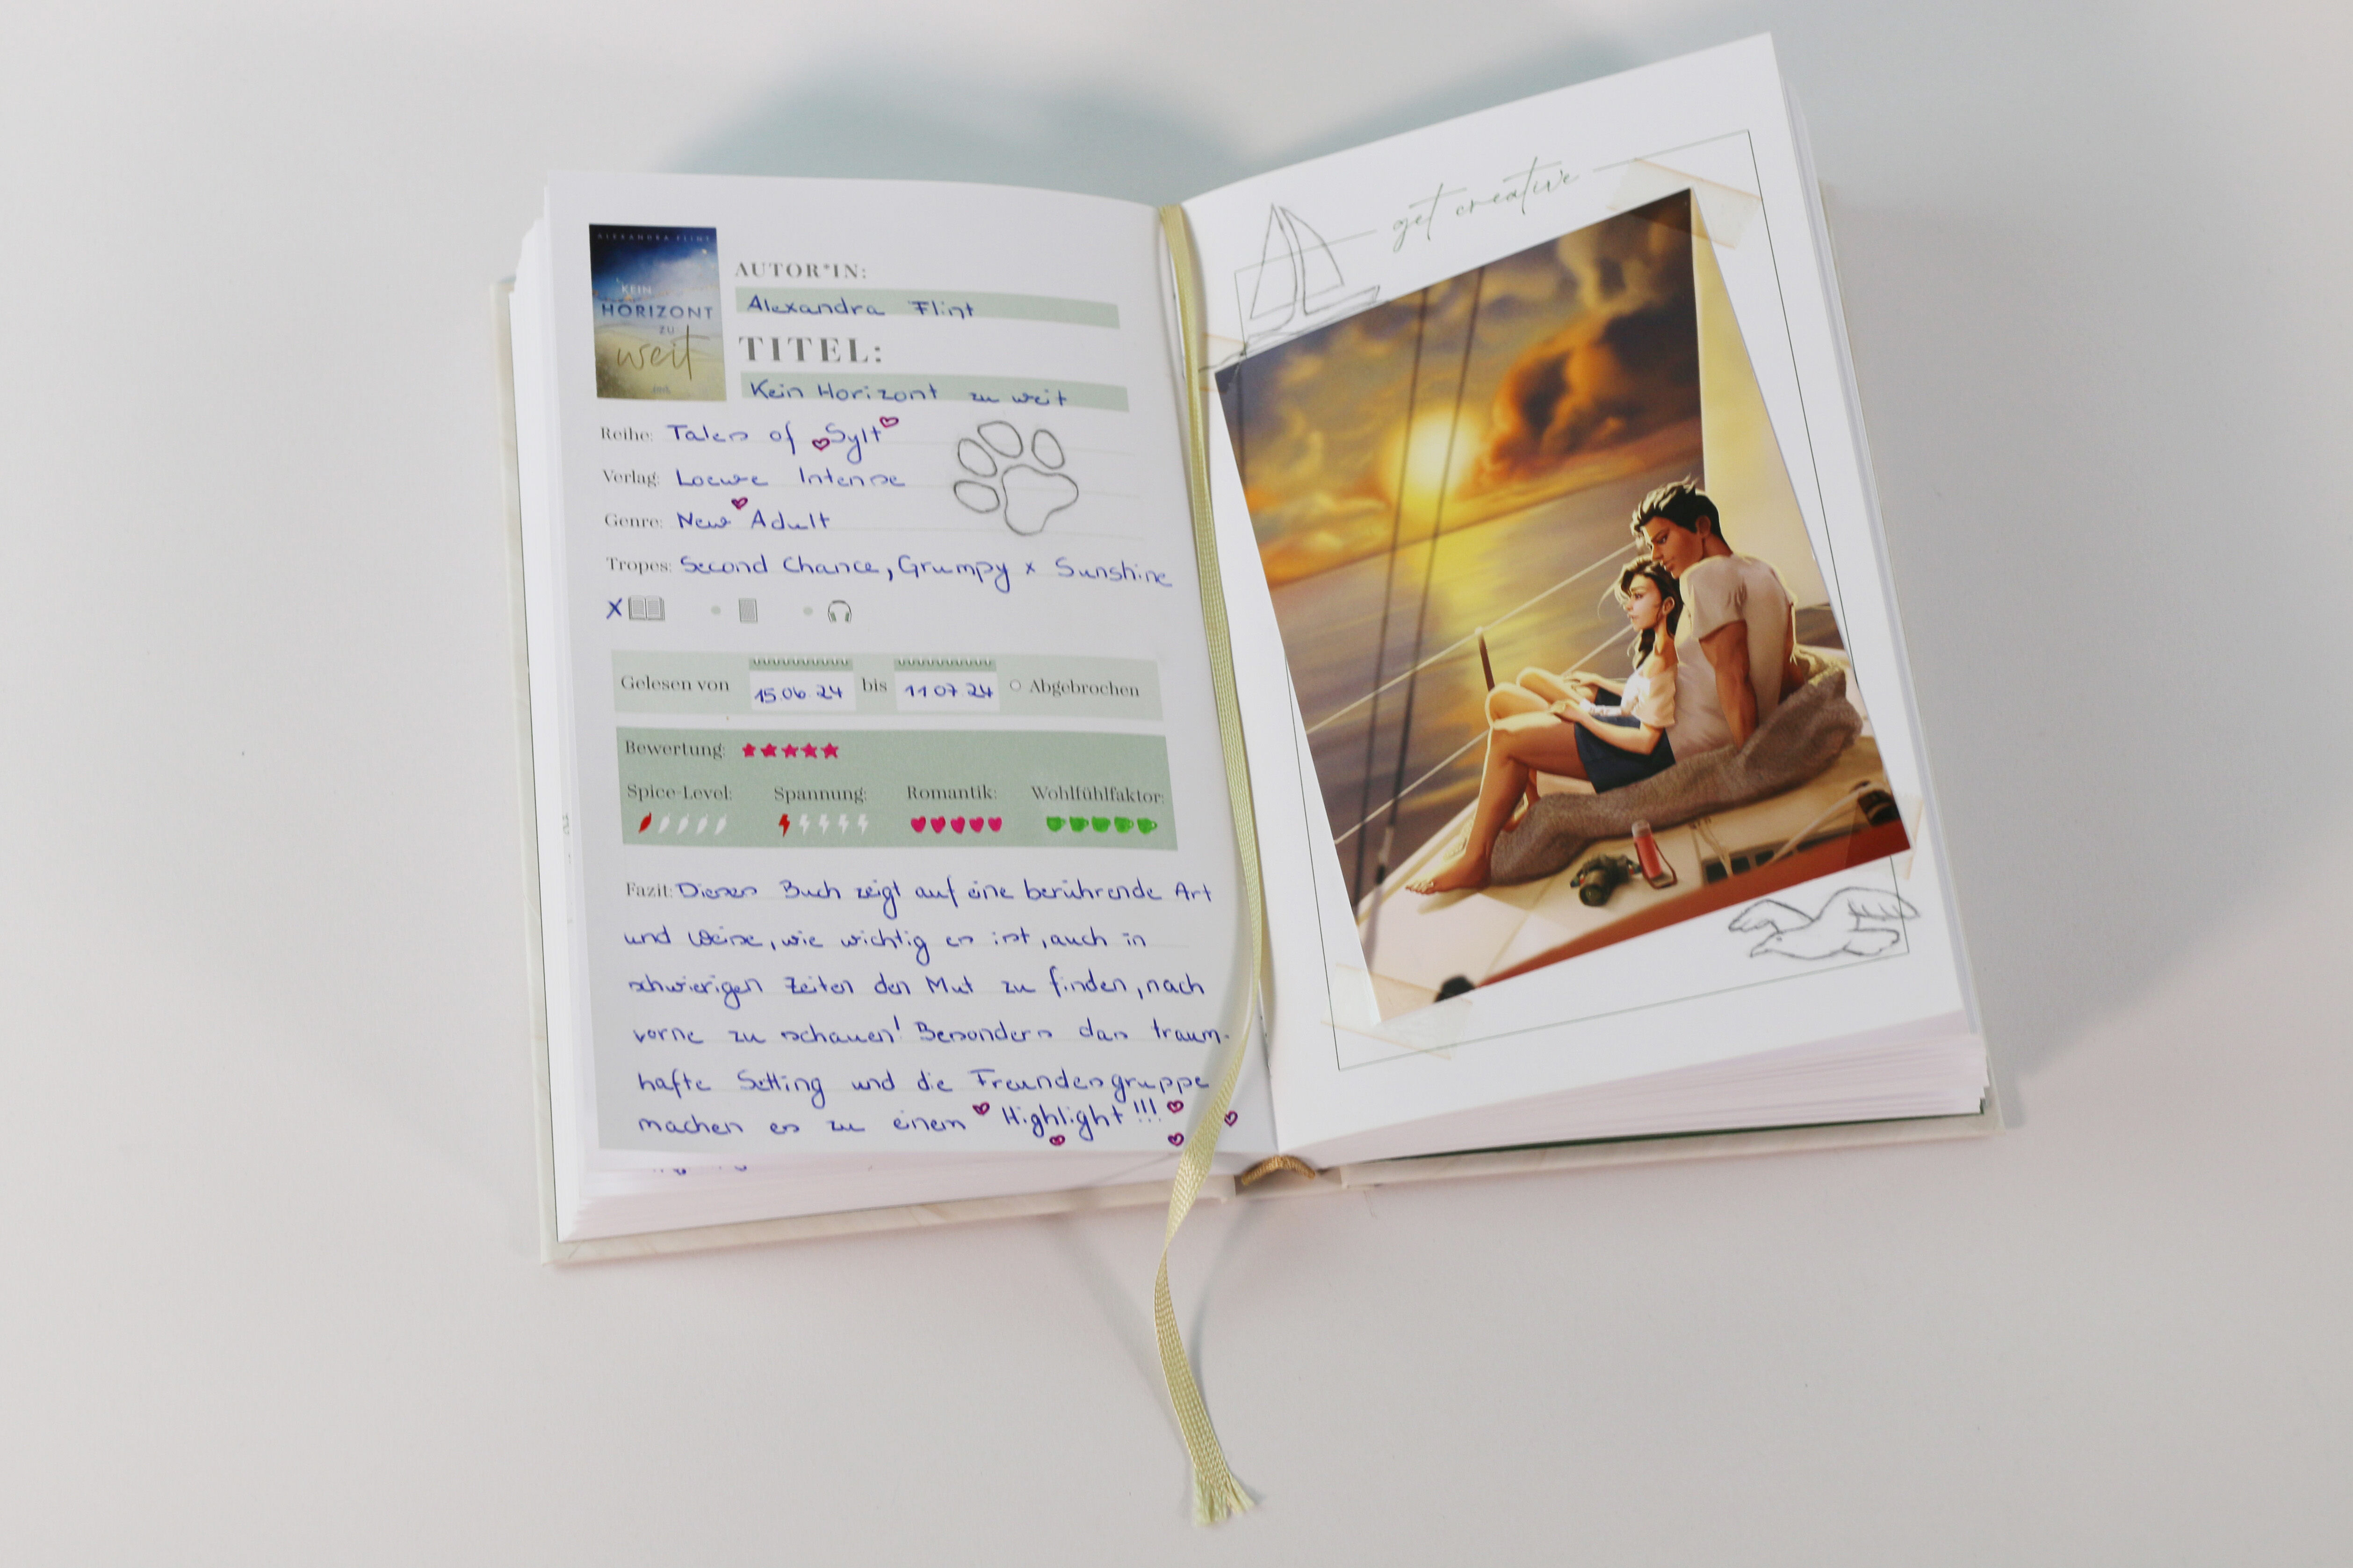 ALEXANDRA FLINT
KEIN
HORIZONT
ZU
weit
AUTOR*IN:
Alexandra Flint
TITEL:
Kein Horizont zu weit
Reihe: Tales of Sylt
Verlag: Loewe Intense
Genre: New Adult
Tropes: Second Chance, Grumpy x Sunshine
X
Gelesen von 15.06.24 bis 11 07 24 Abgebrochen
Bewertung:
Spice-Level: Spannung: Romantik: Wohlfühlfaktor:
Fazit: Dieses Buch zeigt auf eine berührende Art
und Weise, wie wichtig es ist, auch in
schwierigen Zeiten den Mut zu finden, nach
vorne zu schauen! Besonders das traum-
hafte Setting und die Freundesgruppe
machen es zu einem Highlight!!!
get creative